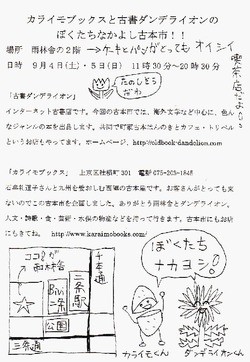 カライモブックスと古書ダンデライオンの
ぼくたちなかよし古本市！！
場所　雨林舎の２階 →ケーキとパンがとってもオイシイ
喫茶店だよ。
日時　９月４日(土)・５日(日)　１１時３０分～２０時３０分
たのしそうだわ
「古書ダンデライオン」
インターネット古書店です。今回の古本市では、海外文学など中心に、色ん
なジャンルの本を出品します。
というお店もやってます。ホームページ、http://oldbook-dandelion.com
「カライモブックス」　上京区　電話 075-203-1845
石牟礼道子さんと九州を愛する西陣の古本屋です。お客さんがとっても来
ないのでこの古本市を企画しました。ありがとう雨林舎とダンデライオン。
人文・詩歌・食・芸術・水俣の物などを持って行きます。古本市にもお店
にもきてね。　http://www.karaimobooks.com/
ココが雨林舎
千本通
二条駅
BiVi二条
公園
三条通
ぼくたちナカヨシ!
カライモくん
ダンデライオンくん